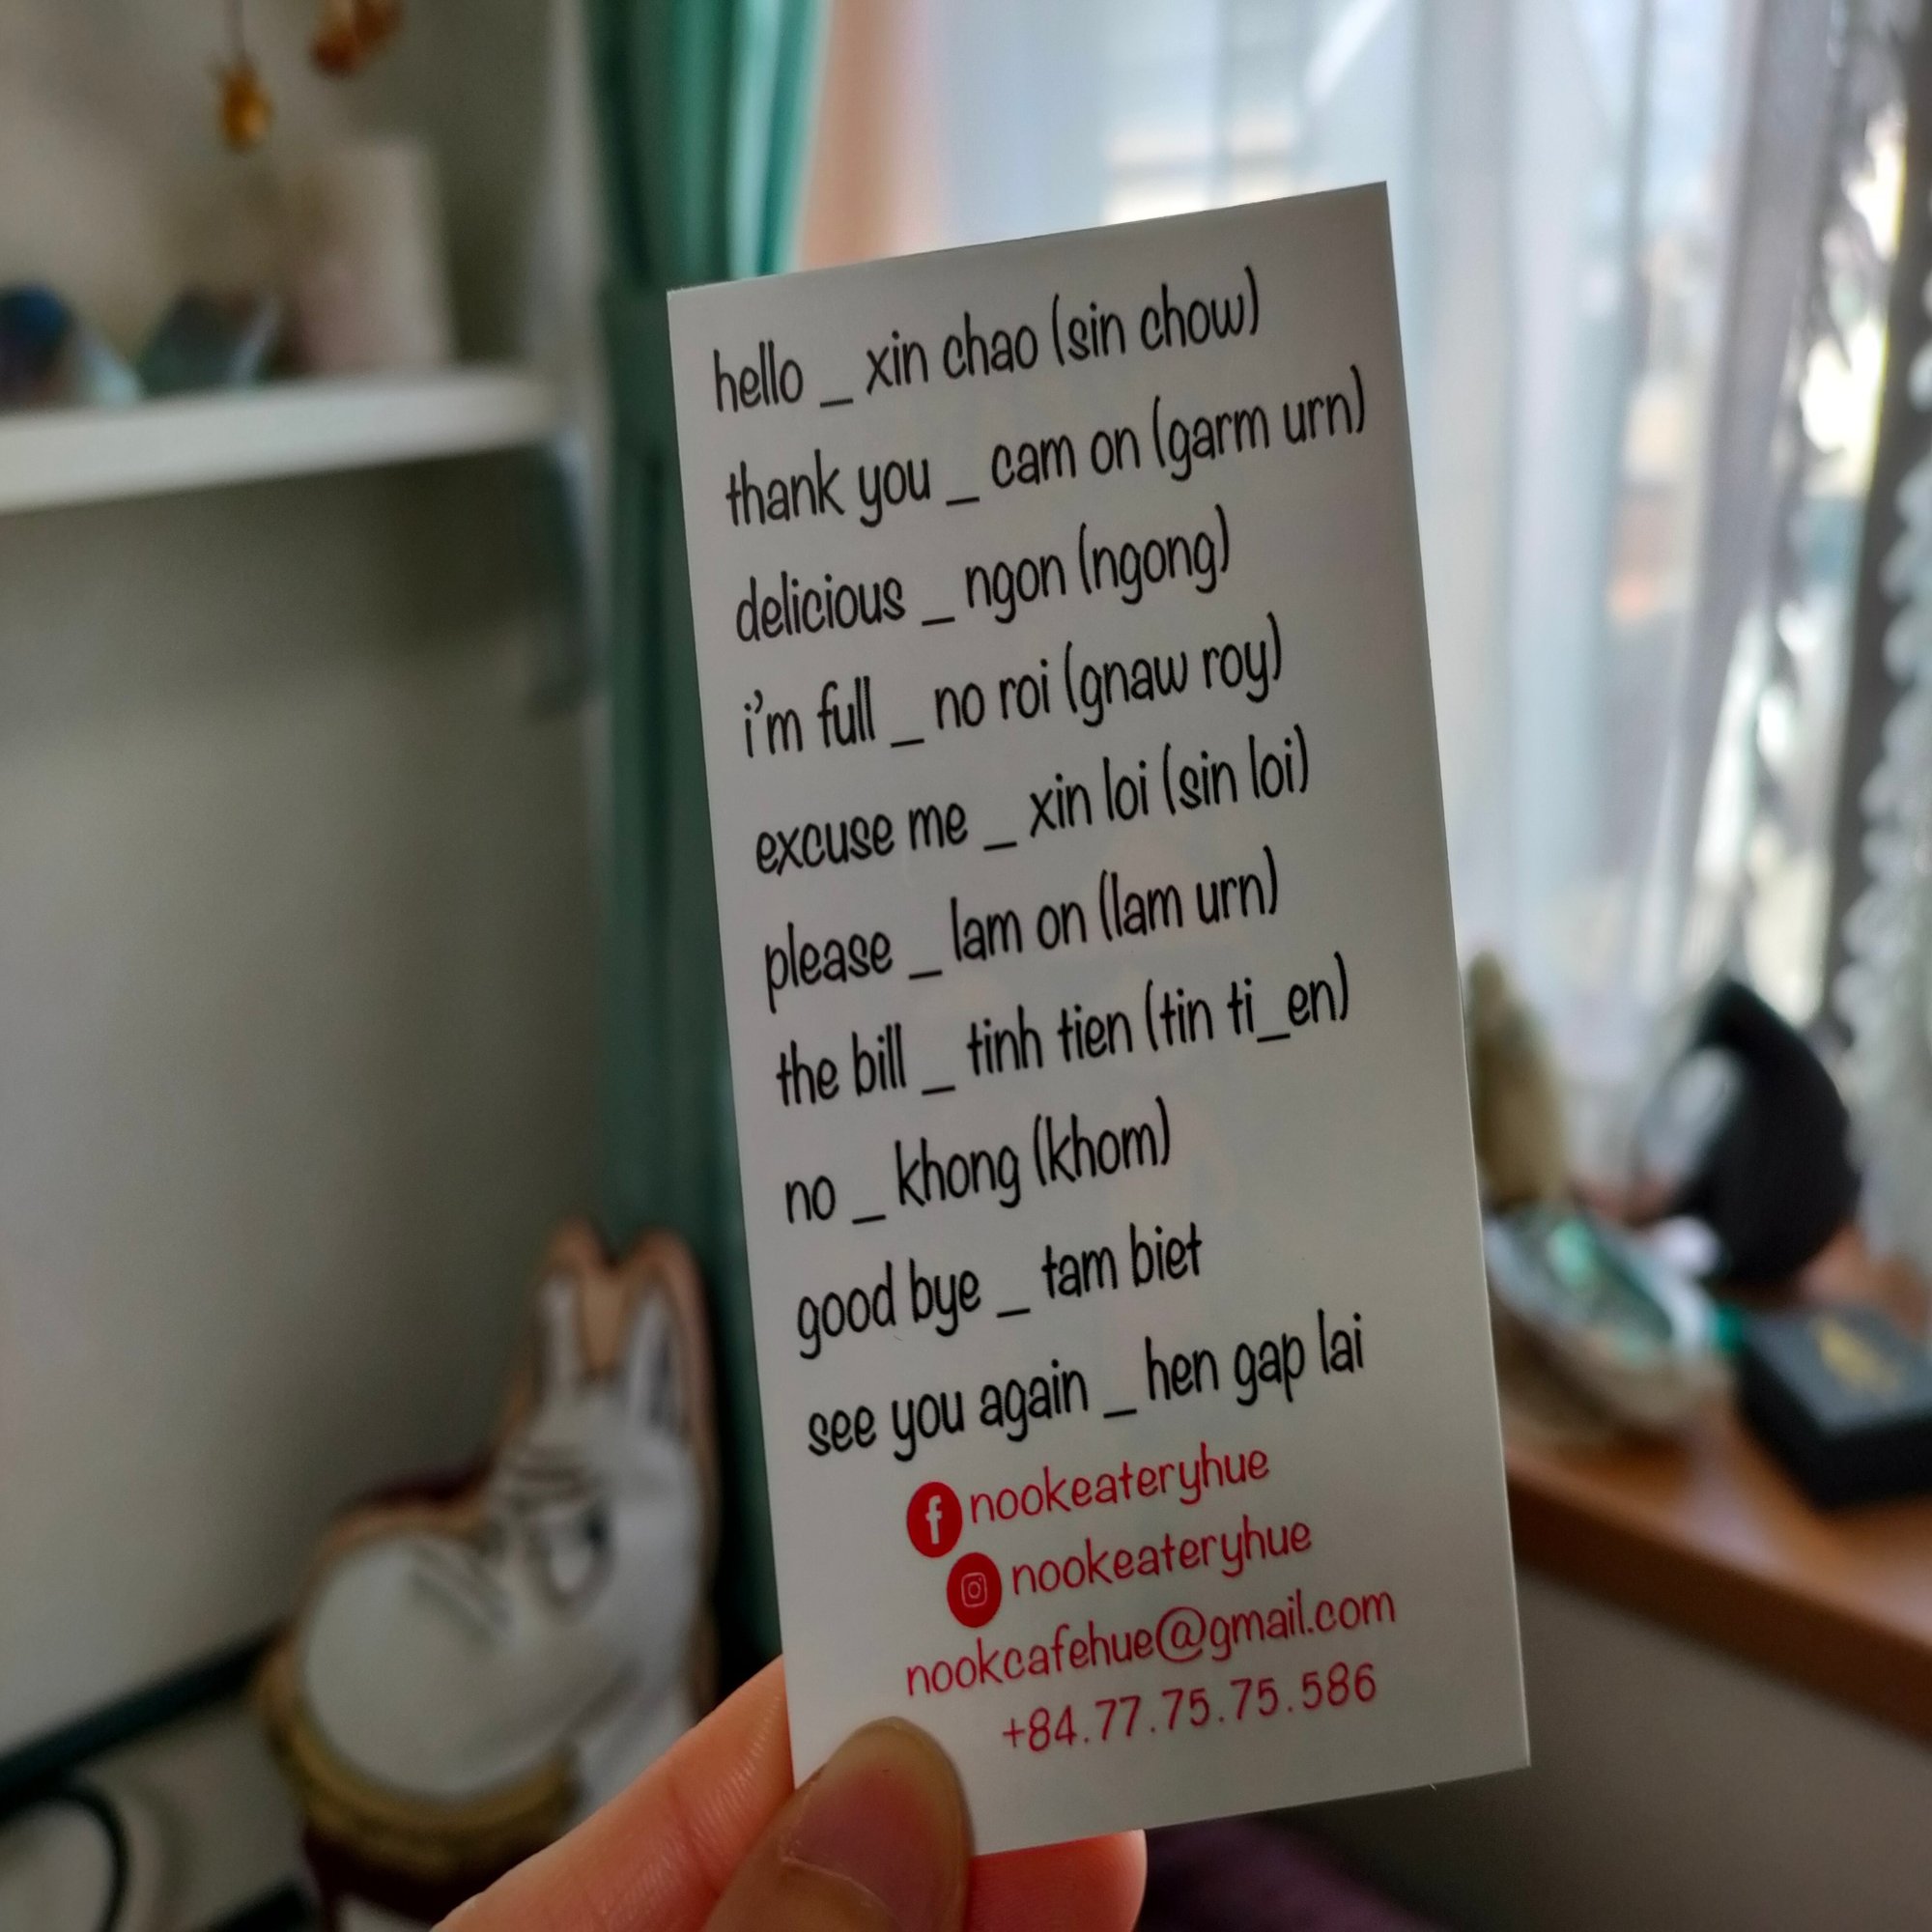 hello _ xin chao (sin chow)
thank you _ cam on (garm urn)
delicious _ ngon (ngong)
i'm full _ no roi (gnaw roy)
excuse me _ xin loi (sin loi)
please _ lam on (lam urn)
the bill _ tinh tien (tin ti_en)
no _ khong (khom)
good bye _ tam biet
see you again _ hen gap lai
nookeateryhue
nookeateryhue
nookcafehue@gmail.com
+84.77.75.75.586